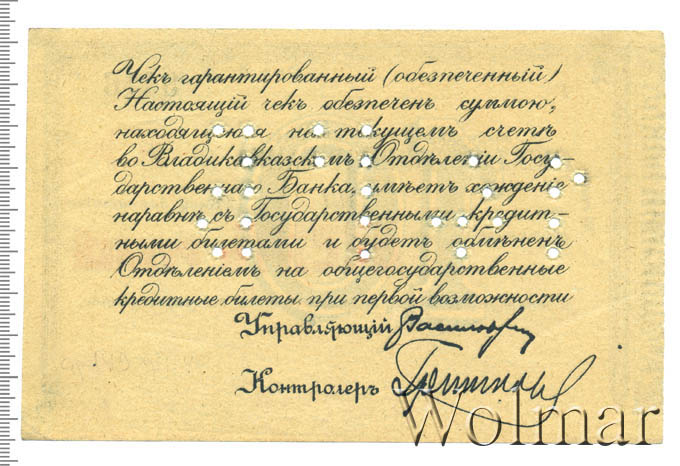 Чекъ гарантированный (обезпеченный)
Настоящій чек обезпечен суммою,
находящуюся на текущемъ счетѣ
во Владикавказскомъ Отдѣленіи Госу-
дарственнаго Банка, имѣетъ хожденіе
наравнѣ съ Государственными кредит-
ными билетами и будетъ обмѣненъ
Отдѣленіемъ на общегосударственные
кредитные билеты при первой возможности
Управляющій
Контролеръ
Wolmar